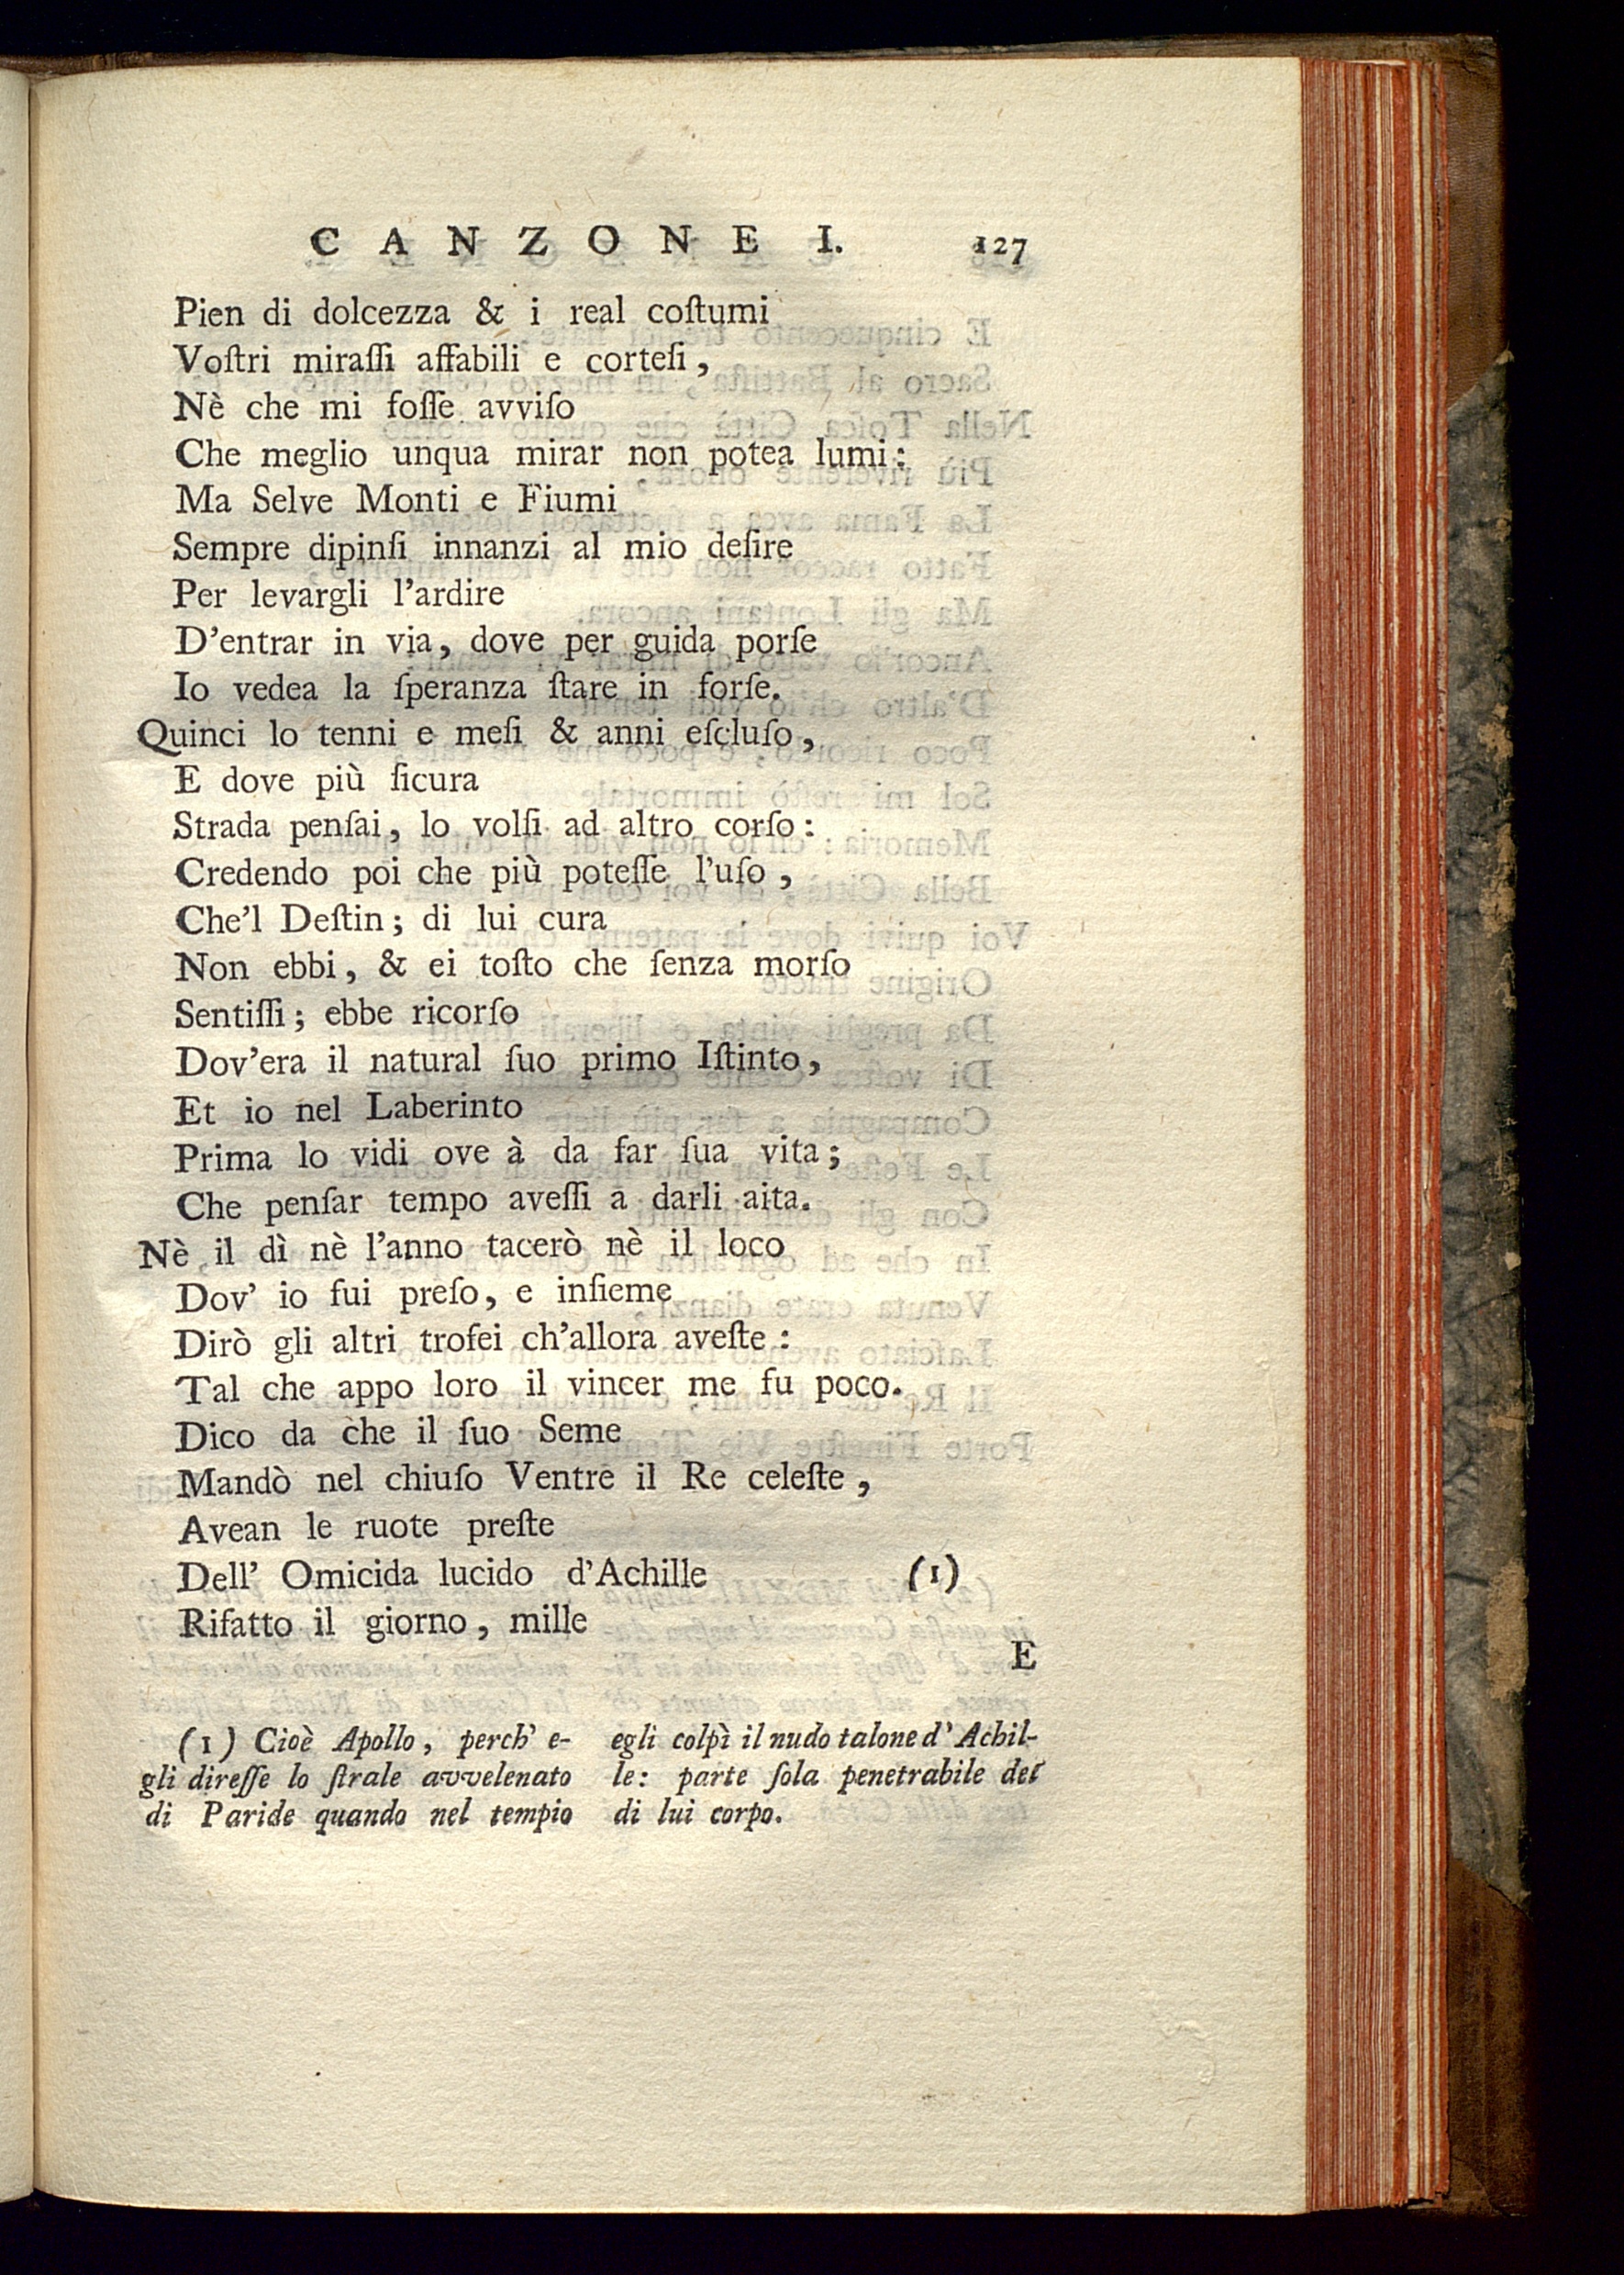 CANZONE I. 127
Pien di dolcezza & i real coſtumi
Voſtri miraſſi affabili e corteſi,
Nè che mi foſſe avviſo
Che meglio unqua mirar non potea lumi:
Ma Selve Monti e Fiumi
Sempre dipinſi innanzi al mio deſire
Per levargli l'ardire
D'entrar in via, dove per guida porſe
Io vedea la ſperanza ſtare in forſe.
Quinci lo tenni e meſi & anni eſcluſo,
E dove più ſicura
Strada penſai, lo volſi ad altro corſo:
Credendo poi che più poteſſe l'uſo,
Che'l Deſtin; di lui cura
Non ebbi, & ei toſto che ſenza morſo
Sentiſſi; ebbe ricorſo
Dov'era il natural ſuo primo Iſtinto,
Et io nel Laberinto
Prima lo vidi ove à da far ſua vita;
Che penſar tempo aveſſi a darli aita.
Nè il dì nè l'anno tacerò nè il loco
Dov' io fui preſo, e inſieme
Dirò gli altri trofei ch'allora aveſte:
Tal che appo loro il vincer me fu poco.
Dico da che il ſuo Seme
Mandò nel chiuſo Ventre il Re celeſte,
Avean le ruote preſte
Dell' Omicida lucido d'Achille (1)
Rifatto il giorno, mille
E
(1) Cioè Apollo, perch' e-
gli direſſe lo ſtrale avvelenato
di Paride quando nel tempio
egli colpì il nudo talone d' Achil-
le: parte ſola penetrabile del
di lui corpo.